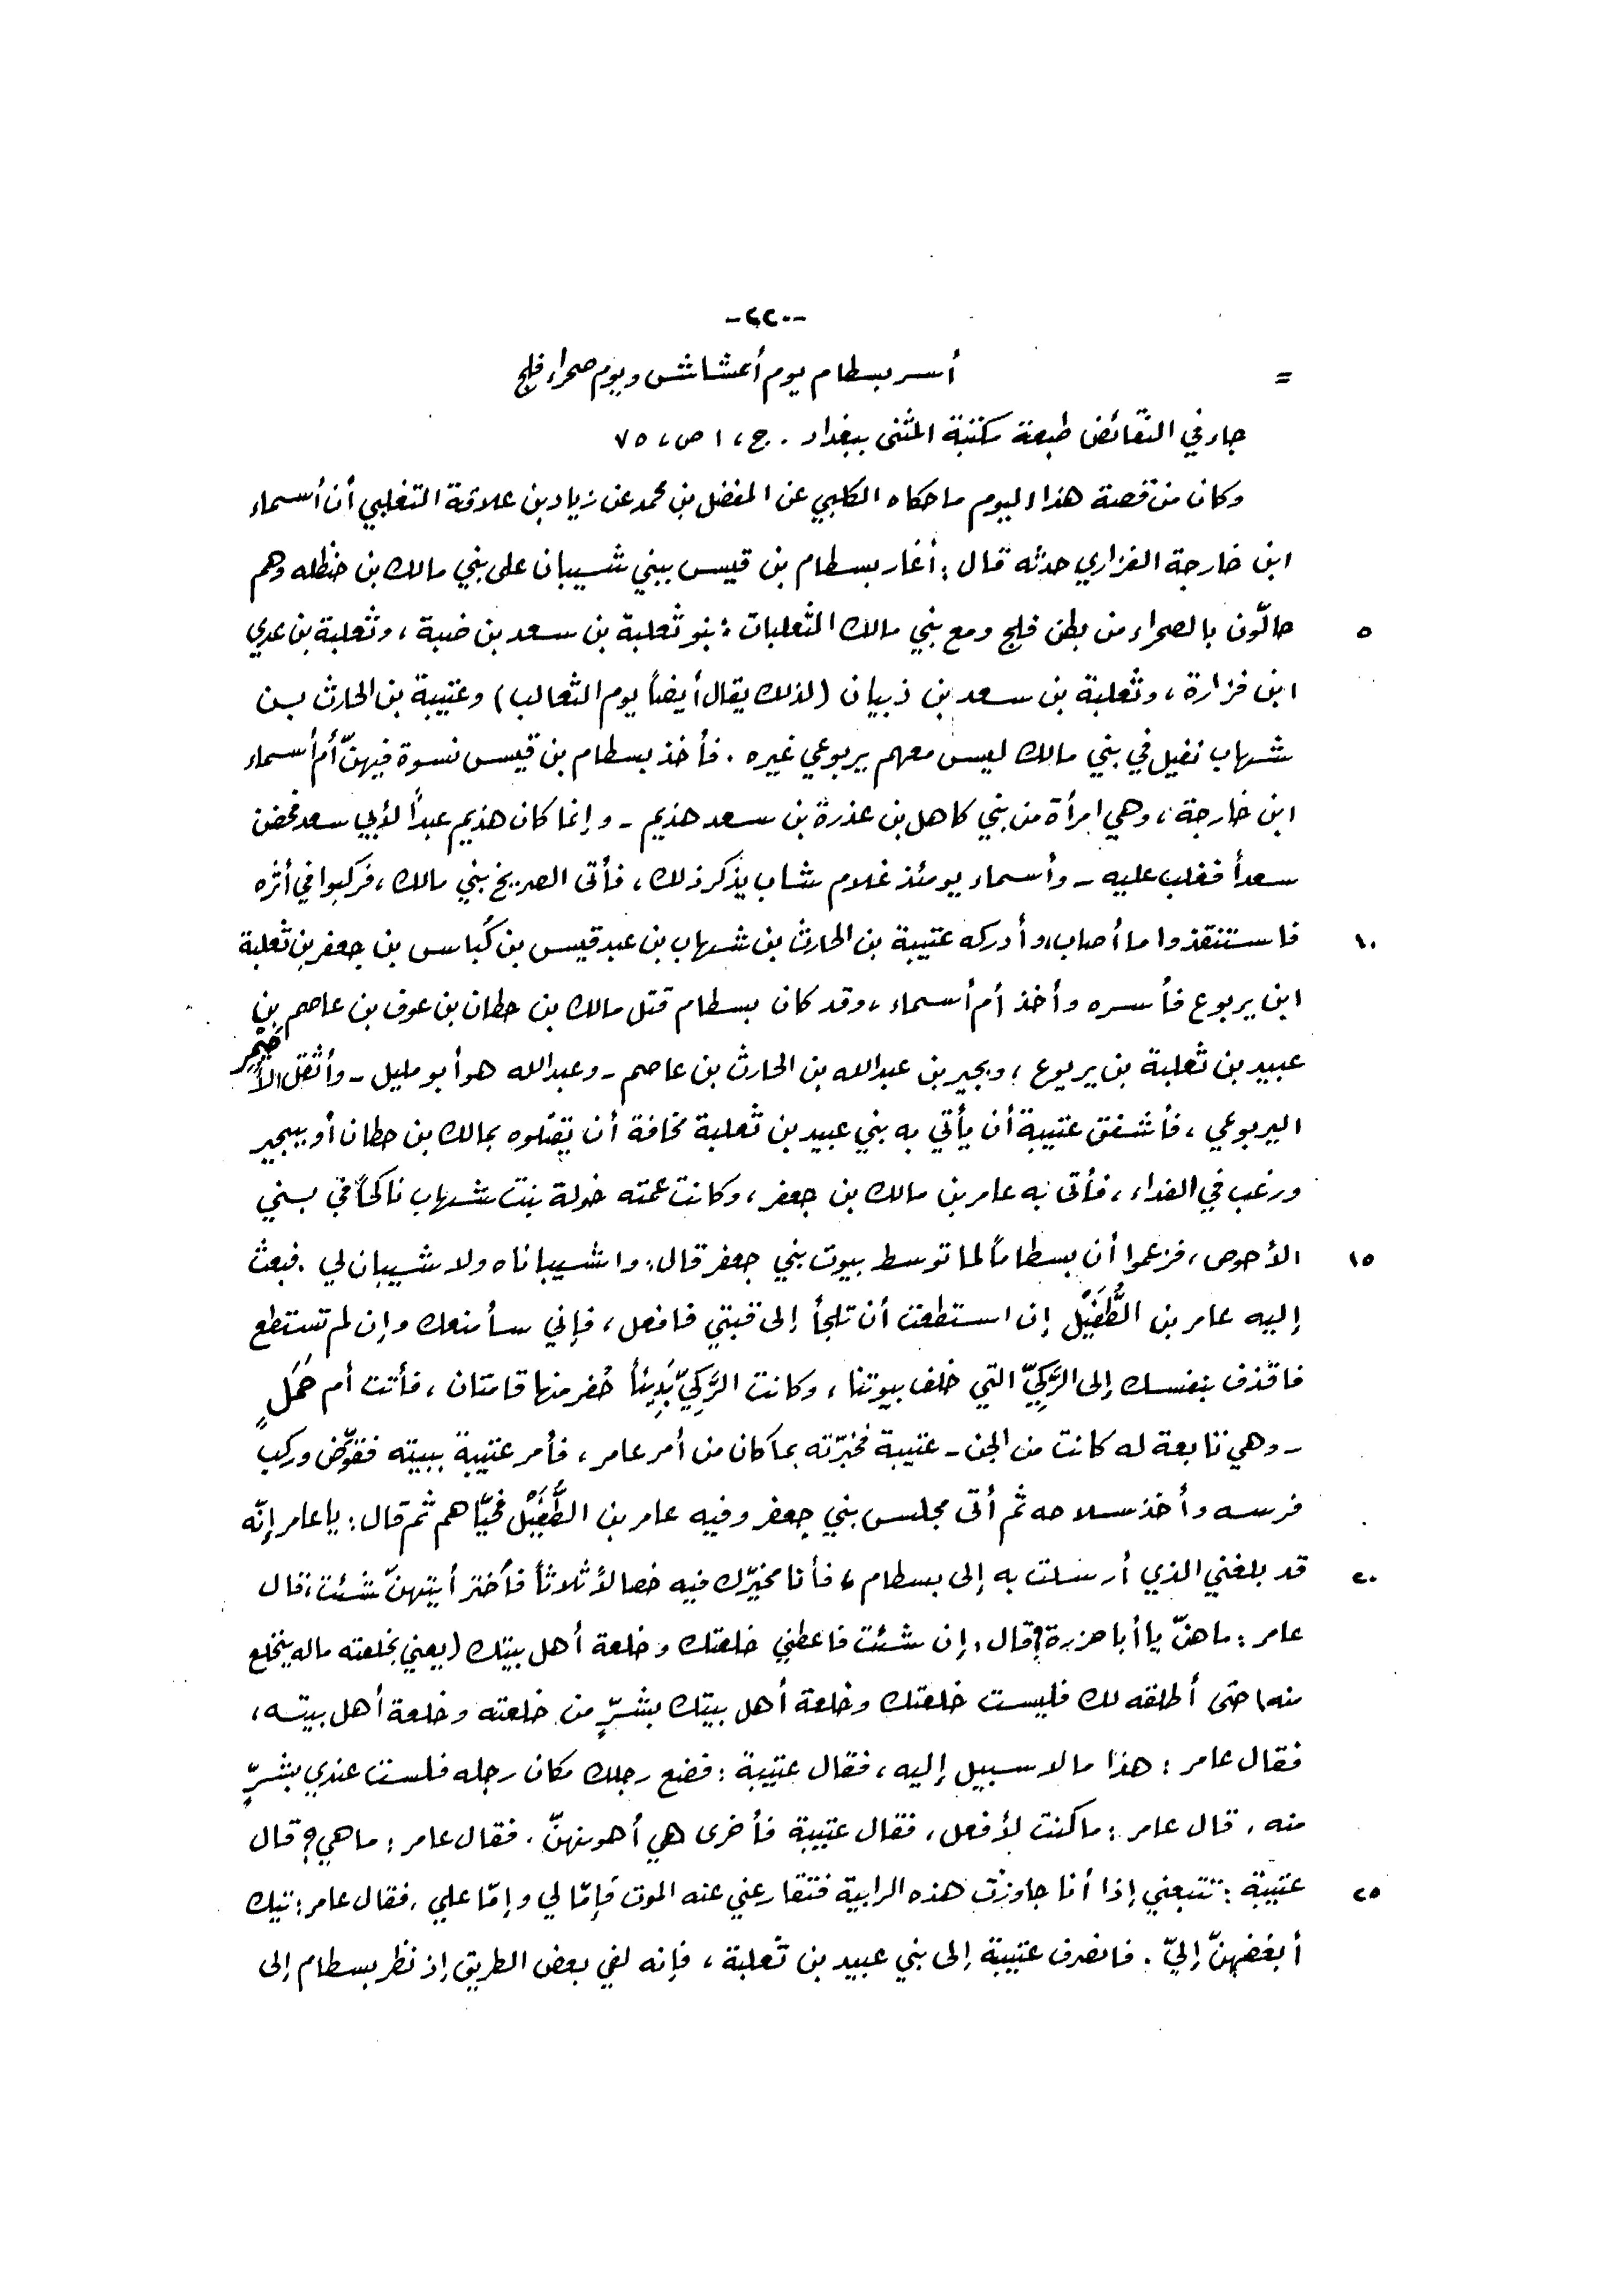 -٢٢٠-
= أسر بسطام يوم أعشاش ويوم صحراء فلج
جاء في النقائض طبعة مكتبة المثنى ببغداد . ج، ١ ص، ٧٥
وكان من قصة هذا اليوم ما حكاه الكلبي عن المفضل بن محمد عن زياد بن علاقة التغلبي أن أسماء
ابن خارجة الفزاري حدثه قال : أغار بسطام بن قيس ببني شيبان على بني مالك بن حنظله وهم
٥ حالّون بالصحراء من بطن فلج ومع بني مالك الثعلبات : بنو ثعلبة بن سعد بن ضبة ، وثعلبة بن عدي
ابن فزارة ، وثعلبة بن سعد بن ذبيان (لذلك يقال أيضاً يوم الثعالب) وعتيبة بن الحارث بن
شهاب نفيل في بني مالك ليس معهم يربوعي غيره . فأخذ بسطام بن قيس نسوة فيهنّ أم أسماء
ابن خارجة ، وهي امرأة من بني كاهل بن عذرة بن سعد هذيم - وإنما كان هذيم عبداً لأبي سعد فحضن
سعداً فغلب عليه - وأسماء يومئذ غلام شاب يذكر ذلك ، فأتى الصريخ بني مالك ، فركبوا في أثره
١٠ فاستنقذوا ما أصاب، وأدركه عتيبة بن الحارث بن شهاب بن عبد قيس بن كُباس بن جعفر بن ثعلبة
ابن يربوع فأسره وأخذ أم أسماء ، وقد كان بسطام قتل مالك بن حطان بن عوف بن عاصم بن
عبيد بن ثعلبة بن يربوع ، وبجير بن عبدالله بن الحارث بن عاصم - وعبدالله هو أبو مليل - وأثقل الأُحَيْمِر
اليربوعي ، فأشفق عتيبة أن يأتي به بني عبيد بن ثعلبة مخافة أن يقتلوه بمالك بن حطان أو ببجير
ورغب في الفداء ، فأتى به عامر بن مالك بن جعفر ، وكانت عمته خولة بنت شهاب ناكحاً في بني
١٥ الأحوص ، فزعموا أن بسطاماً لما توسط بيوت بني جعفر قال: واشيباناه ولا شيبان لي . فبعث
إليه عامر بن الطُّفَيْل إن استطعت أن تلجأ إلى قبتي فافعل ، فإني سأمنعك وإن لم تستطع
فاقذف بنفسك إلى الرَّكِيّ التي خلف بيوتنا ، وكانت الرَّكِيّ بَدِيئاً حُفر منها قامتان ، فأتت أم حَمَلٍ
- وهي تابعة له كانت من الجن - عتيبة فخبّرته بما كان من أمر عامر ، فأمر عتيبة ببيته فقوّض وركب
فرسه وأخذ سلاحه ثم أتى مجلس بني جعفر وفيه عامر بن الطُّفَيْل فحيّاهم ثم قال: يا عامر إنّه
٢٠ قد بلغني الذي أرسلت به إلى بسطام ، فأنا مخيّرك فيه خصالاً ثلاثاً فأختر أيتهنّ شئت ، قال
عامر : ما هنّ يا أبا حزرة؟ قال : إن شئت فاعطني خلعتك وخلعة أهل بيتك (يعني بخلعته ماله ينخلع
منه) حتى أطلقه لك فليست خلعتك وخلعة أهل بيتك بشرٍّ من خلعته وخلعة أهل بيته ،
فقال عامر : هذا مالا سبيل إليه ، فقال عتيبة : فضع رجلك مكان رجله فلست عندي بشرٍّ
منه ، قال عامر : ما كنت لأفعل ، فقال عتيبة فأخرى هي أهونهنّ . فقال عامر : ما هي؟ قال
٢٥ عتيبة : تتبعني إذا أنا جاوزت هذه الرابية فتقارعني عنه الموت فإمّا لي وإمّا علي . فقال عامر : تيك
أبغضهنّ إليّ . فانصرف عتيبة إلى بني عبيد بن ثعلبة ، فإنه لفي بعض الطريق إذ نظر بسطام إلى